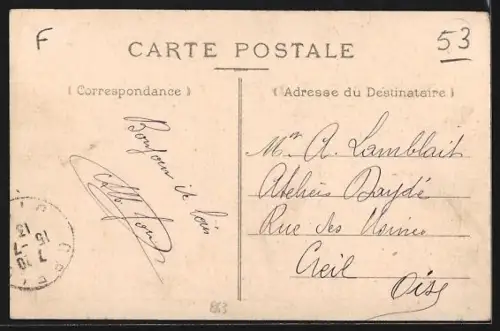 F
53
CARTE POSTALE
( Correspondance )
( Adresse du Destinataire )
Bonjour de loin
Mr A. Lamblait
Ateliers Daydé
Rue des Usines
Creil
Oise
863